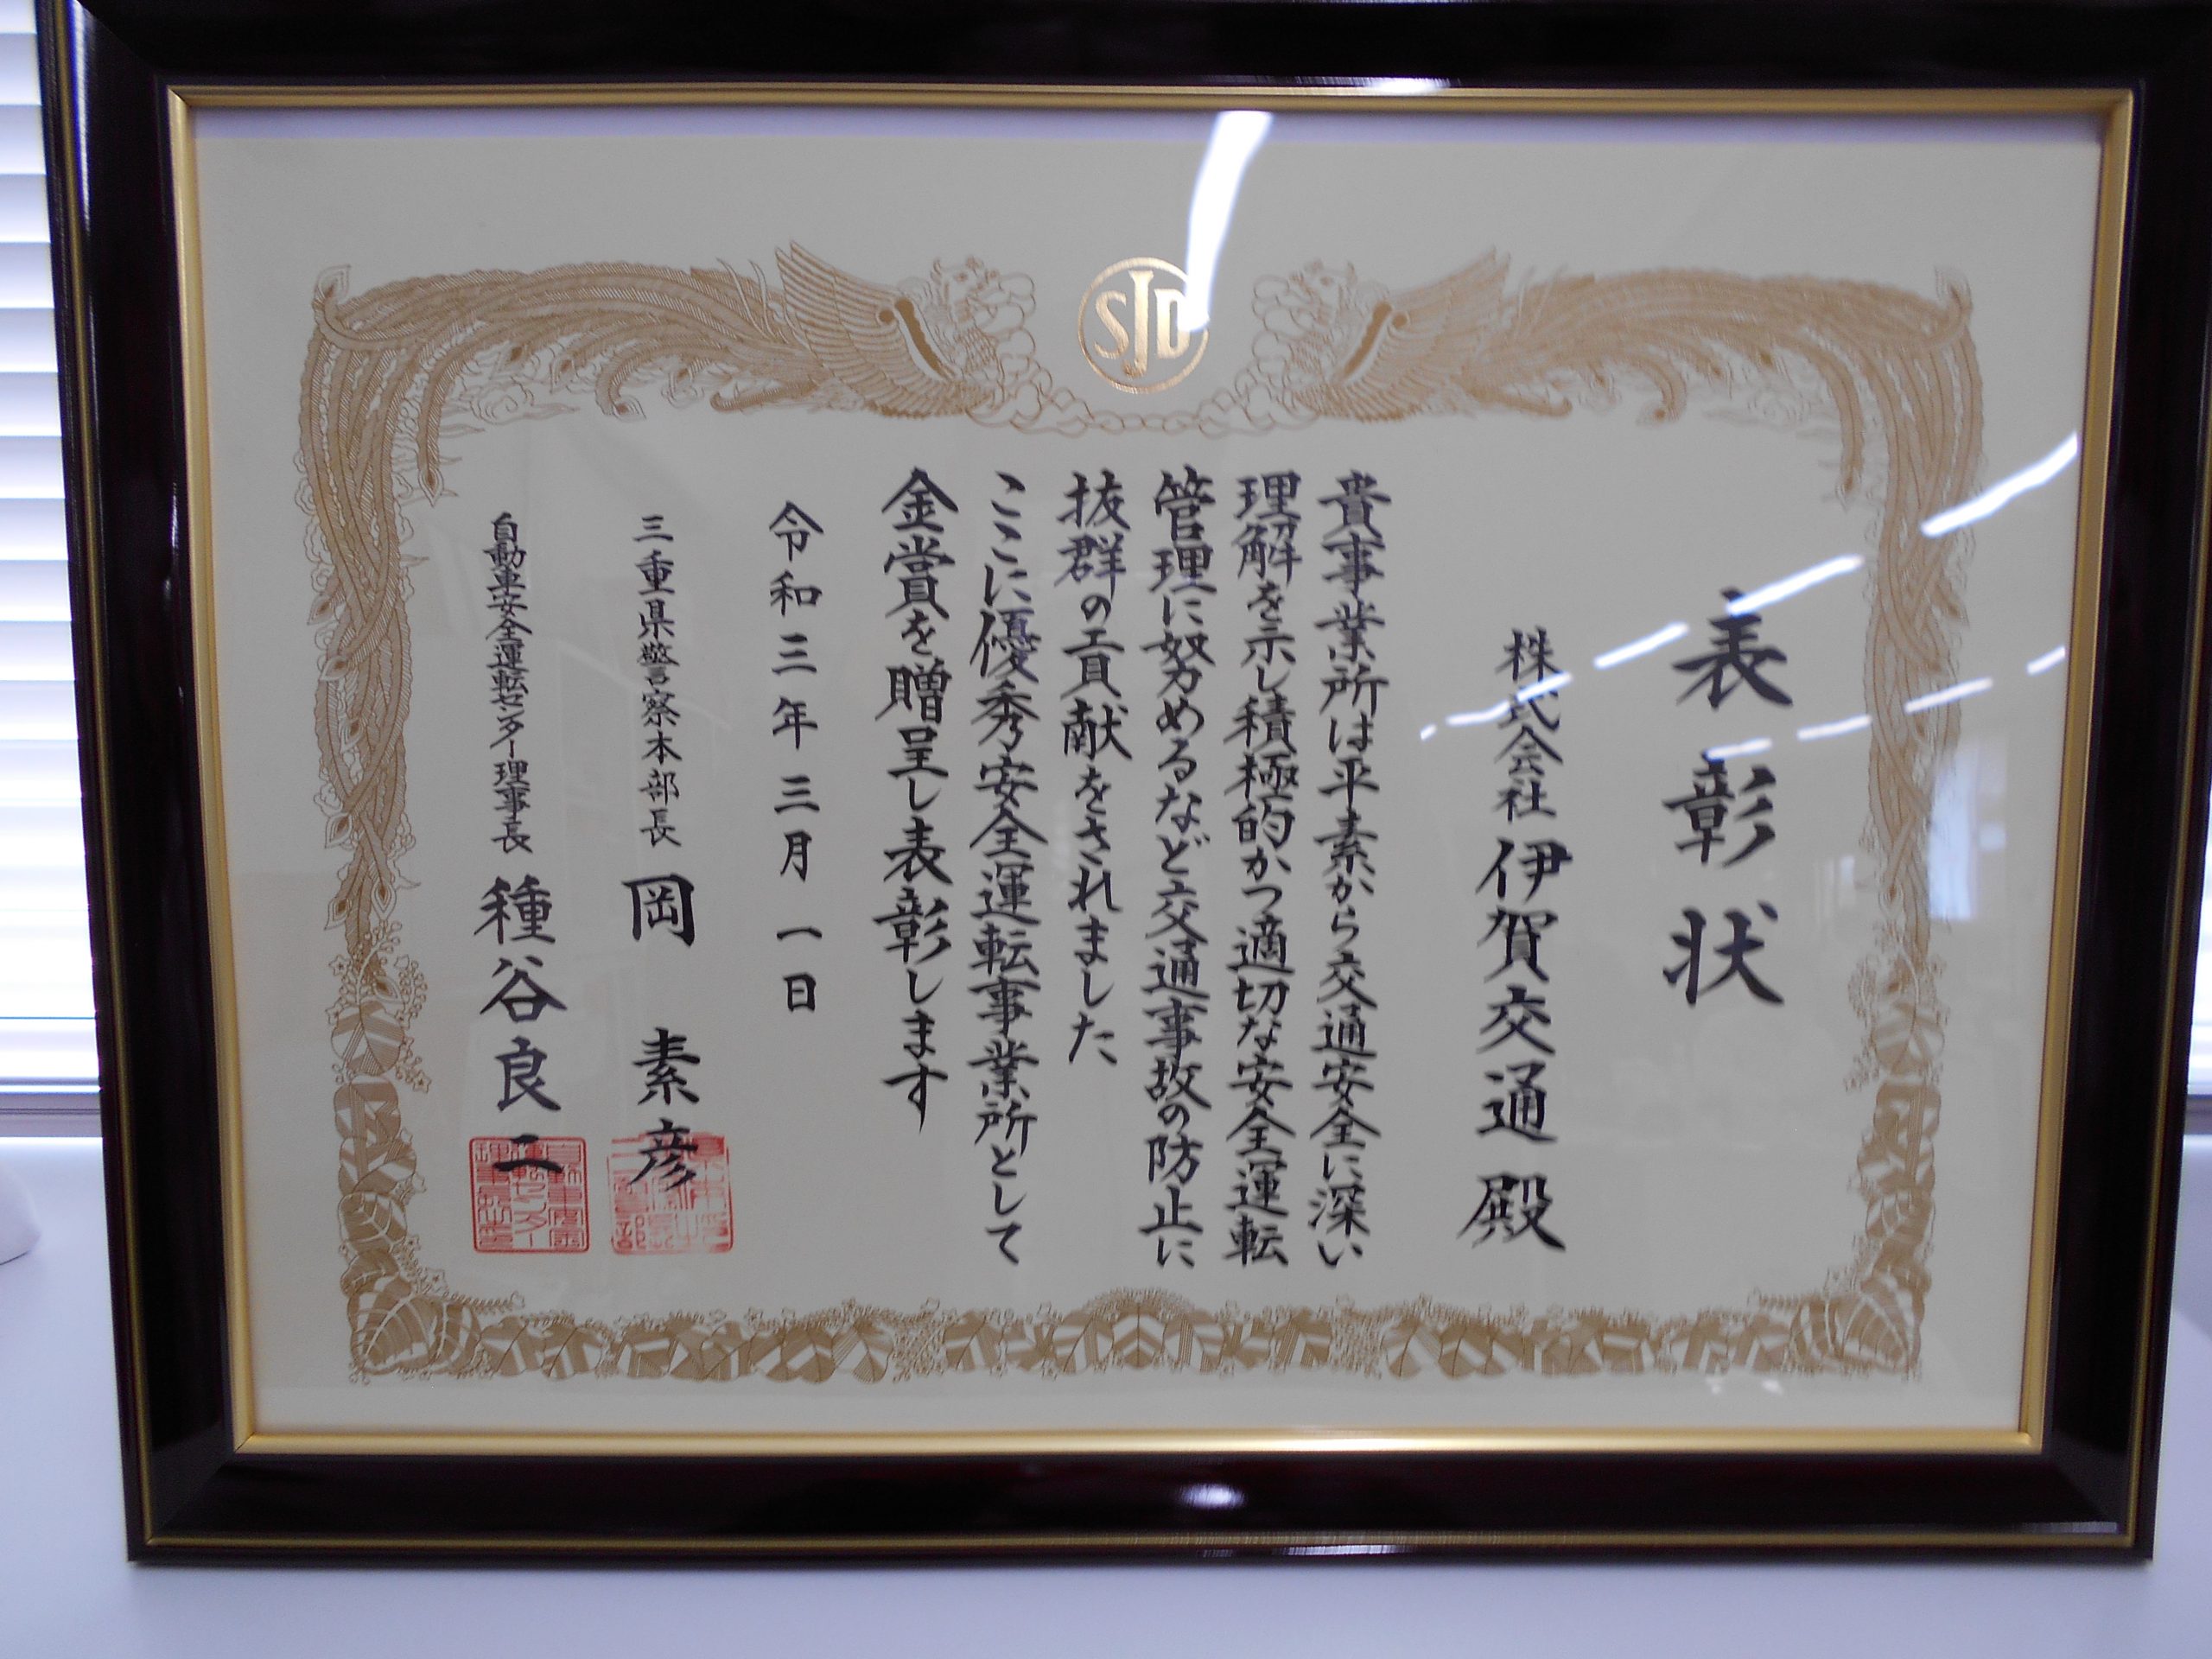 SJD
表彰状
株式会社 伊賀交通 殿
貴事業所は平素から交通安全に深い
理解を示し積極的かつ適切な安全運転
管理に努めるなど交通事故の防止に
抜群の貢献をされました
ここに優秀安全運転事業所として
金賞を贈呈し表彰します
令和三年三月一日
三重県警察本部長 岡 素彦
自動車安全運転センター理事長 種谷良二